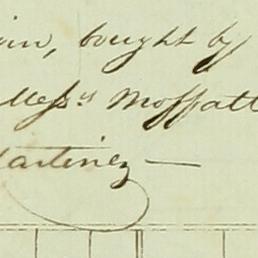 bought by
Mess^rs Moffatt
Martinez —